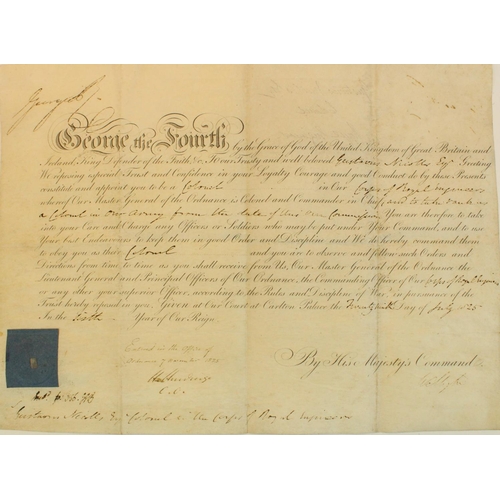 George R
George the Fourth by the Grace of God of the United Kingdom of Great Britain and
Ireland, King, Defender of the Faith &c. To our Trusty and well beloved Gustavus Nicolls Esqr. Greeting
We reposing especial Trust and Confidence in your Loyalty Courage and good Conduct do by these Presents
constitute and appoint you to be a Colonel in Our Corps of Royal Engineers
whereof Our Master General of the Ordnance is Colonel and Commander in Chief and to take rank as
a Colonel in Our Army from the date of this Our Commission You are therefore to take
into your Care and Charge any Officers or Soldiers who may be put under Your Command, and to use
Your best Endeavours to keep them in good Order and Discipline, and We do hereby command them
to obey you as their Colonel and you are to observe and follow such Orders and
Directions from time to time as you shall receive from Us, Our Master General of the Ordnance the
Lieutenant General and Principal Officers of Our Ordnance, the Commanding Officer of Our Corps of Royal Engineers
or any other your superior Officer, according to the Rules and Discipline of War, in pursuance of the
Trust hereby reposed in you. Given at Our Court at Carlton Palace the Day of July 1825
In the Sixth Year of Our Reign.
Entered in the Office of
Ordnance 7 November 1825
By His Majesty's Command
Gustavus Nicolls Esqr. Colonel in the Corps of Royal Engineers